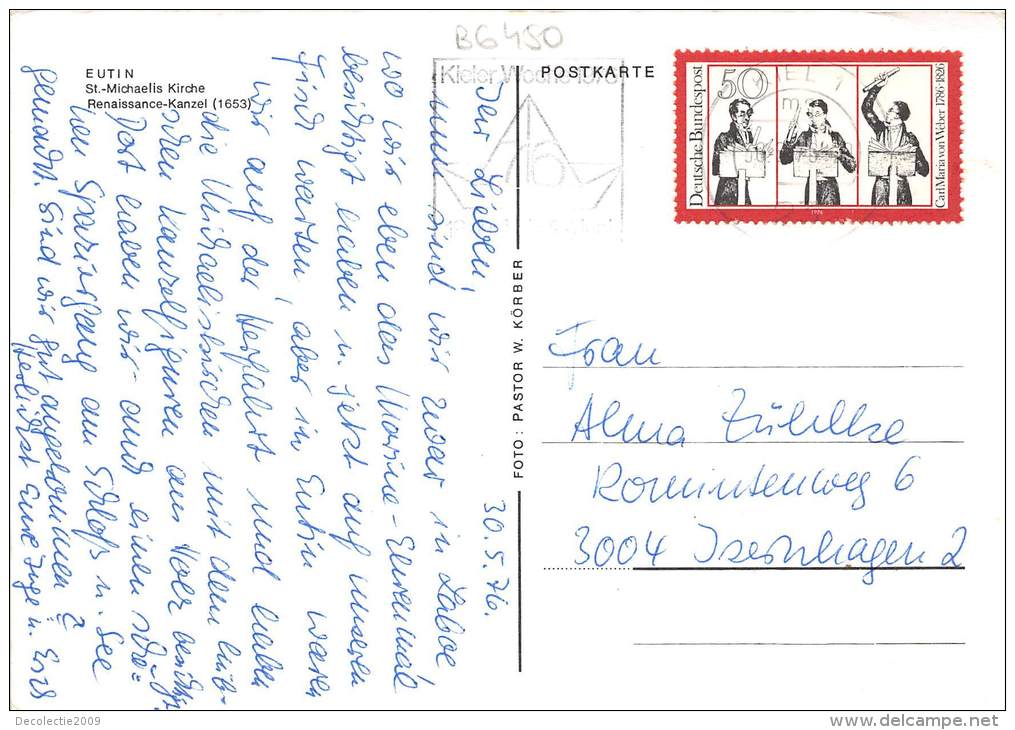 B6450
EUTIN
St.-Michaelis Kirche
Renaissance-Kanzel (1653)
Kieler Woche 1976
POSTKARTE
Deutsche Bundespost
50
Carl Maria von Weber 1786-1826
1976
30.5.76.
Ihr Lieben!
nun sind wir zwar in Laboe
wo wir eben das Marine-Ehrenmal
besichtigt haben u. jetzt auf unseren
warten, aber in Eutin waren
wir auf der Herfahrt und haben
die Michaeliskirche mit den
Kanzelfiguren aus Holz
Dort haben wir auch einen schö-
nen Spaziergang am Schloß u. See
gemacht. Sind wir gut angekommen
Herzlichst Eure Inge u.
FOTO: PASTOR W. KÖRBER
Frau
Alma Zühlke
Romintenweg 6
3004 Isernhagen 2
Decolectie2009
delcampe.net